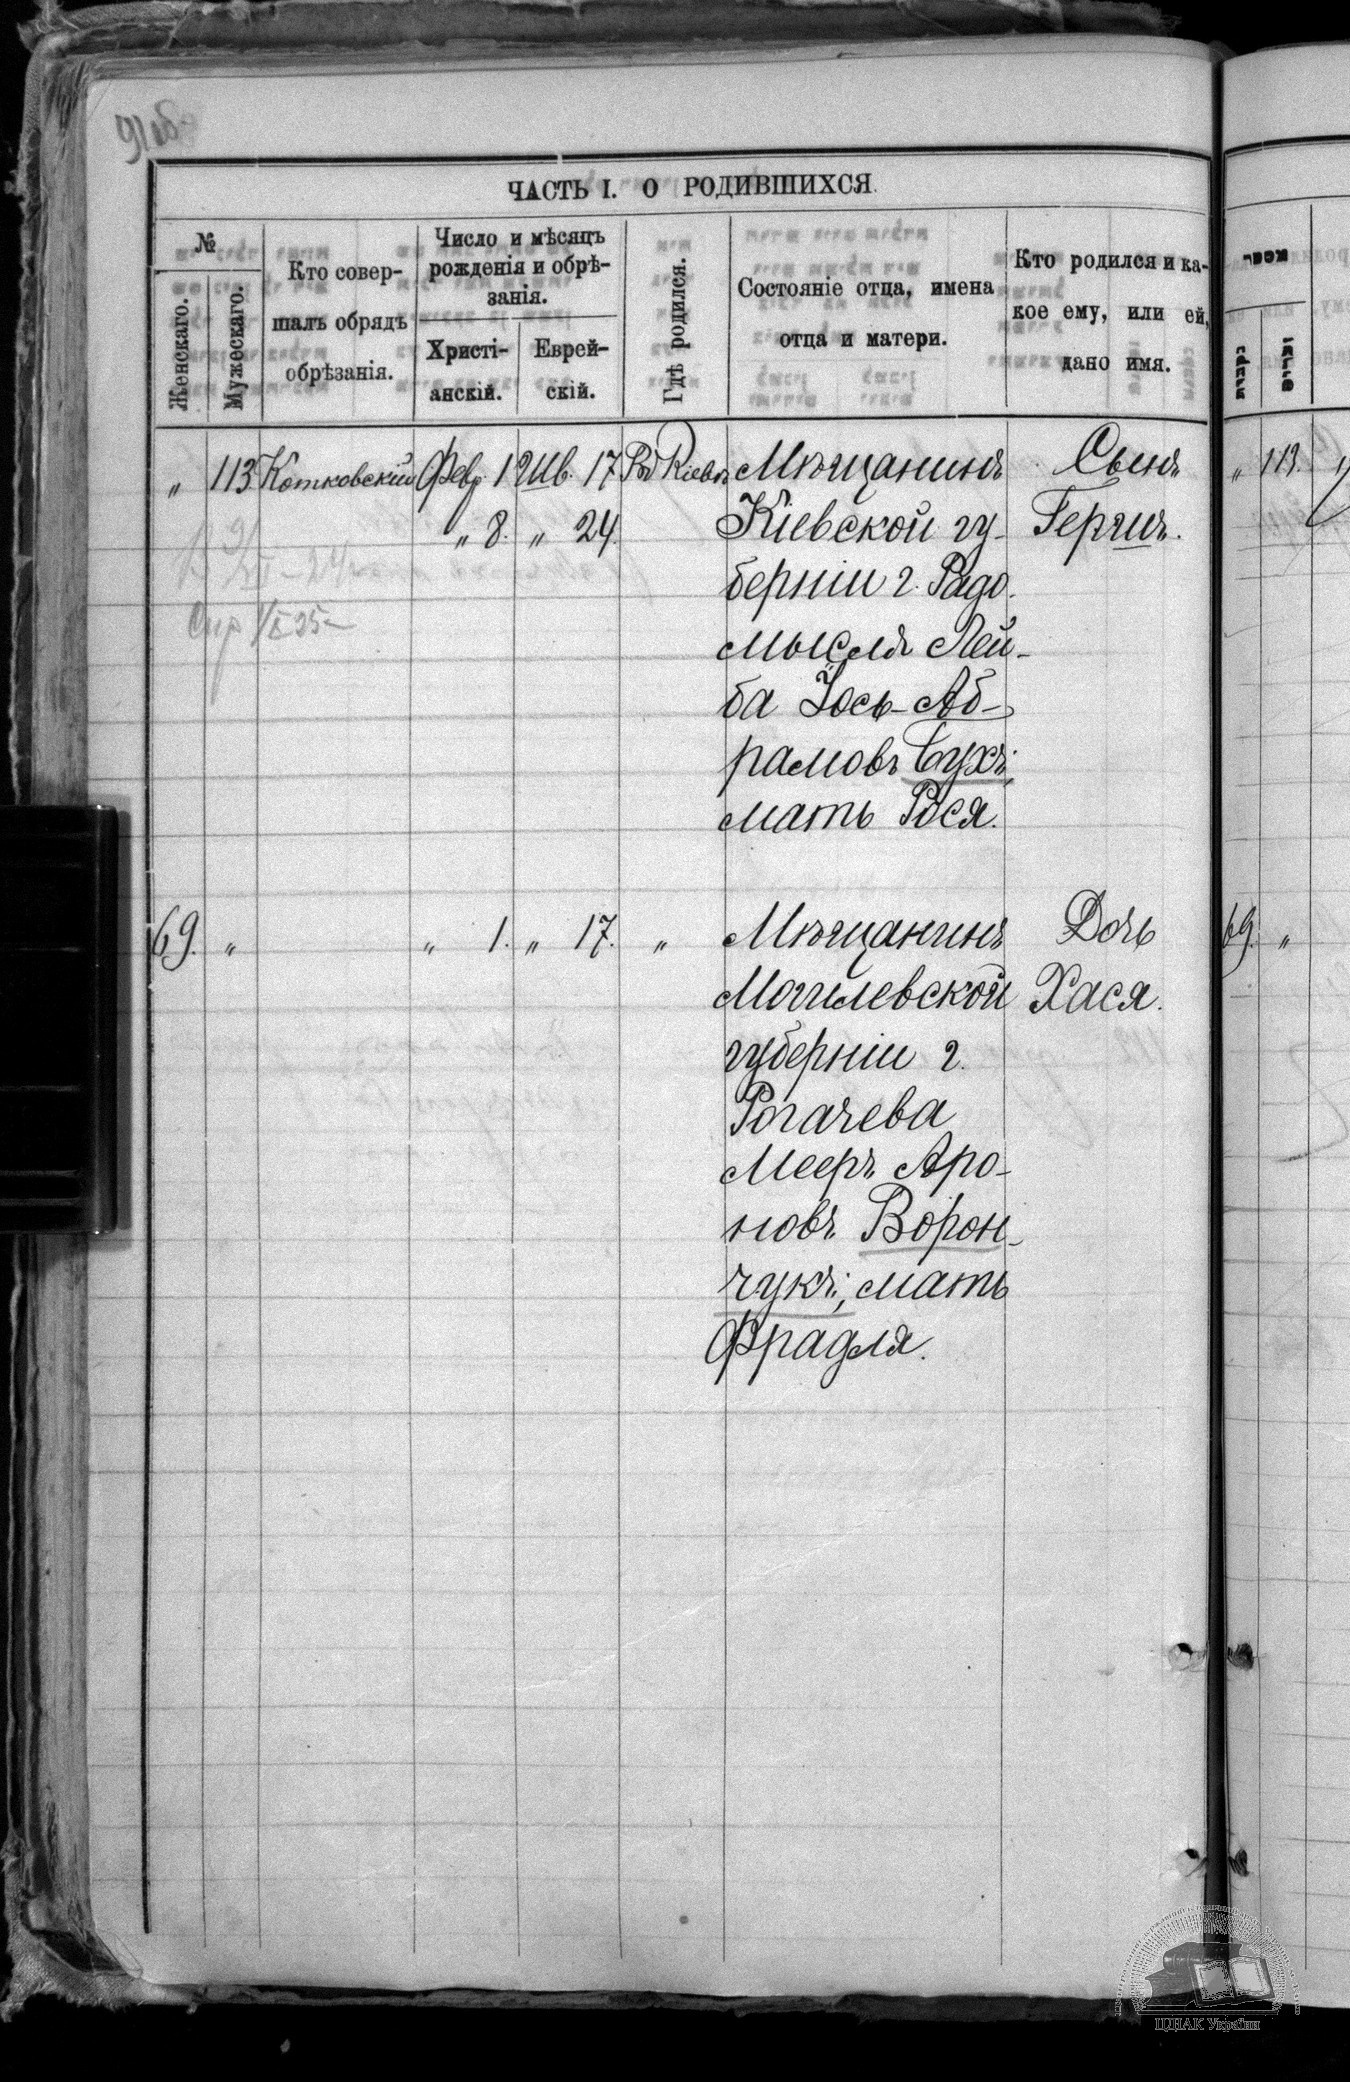 91об
ЧАСТЬ I. О РОДИВШИХСЯ.
№
Женскаго.
Мужескаго.
Кто совер-
шалъ обрядъ
обрѣзанія.
Число и мѣсяцъ
рожденія и обрѣ-
занія.
Христі-
анскій.
Еврей-
скій.
Гдѣ родился.
Состояніе отца, имена
отца и матери.
Кто родился и ка-
кое ему, или ей,
дано имя.
„ 113 Котковскій Февр. 1 Шв. 17 Въ Кіевѣ Мѣщанинъ Сынъ
„ 8. „ 24. Кіевской гу- Гершъ.
берніи г. Радо-
мысля Лей-
ба Іось-Аб-
рамовъ Сухъ;
мать Рося.
69. „ „ 1. „ 17. „ Мѣщанинъ Дочь
Могилевской Хася.
губерніи г.
Рогачева
Мееръ Аро-
новъ Ворон-
чукъ; мать
Фрадля.
„ 113.
69. „
ЦДІАК України